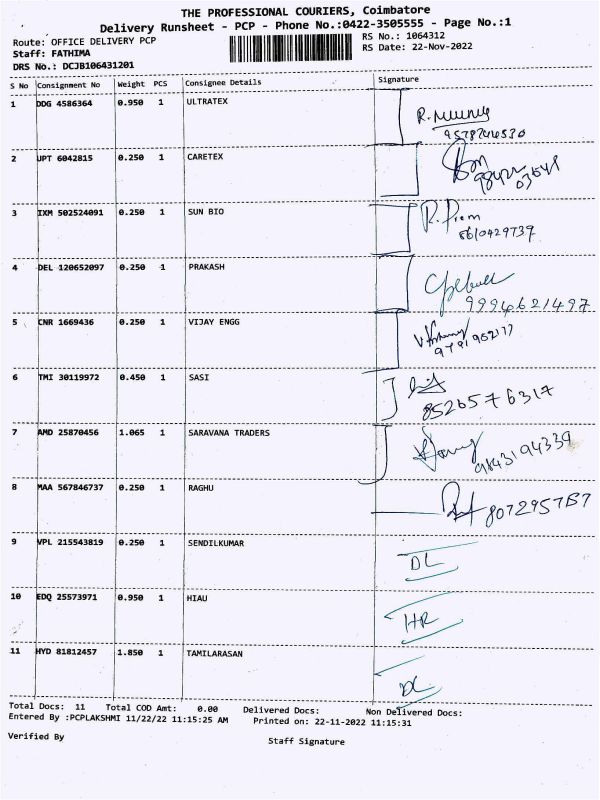 THE PROFESSIONAL COURIERS, Coimbatore
Delivery Runsheet - PCP - Phone No.:0422-3505555 - Page No.:1
Route: OFFICE DELIVERY PCP
RS No.: 1064312
Staff: FATHIMA
RS Date: 22-Nov-2022
DRS No.: DCJB106431201
S No Consignment No Weight PCS Consignee Details Signature
1 DDG 4586364 0.950 1 ULTRATEX
2 UPT 6042815 0.250 1 CARETEX
3 IXM 502524091 0.250 1 SUN BIO R. Prem
8610429739
4 DEL 120652097 0.250 1 PRAKASH
9994621497
5 CNR 1669436 0.250 1 VIJAY ENGG
6 TMI 30119972 0.450 1 SASI
8526576317
7 AMD 25870456 1.065 1 SARAVANA TRADERS
9843194339
8 MAA 567846737 0.250 1 RAGHU
9 VPL 215543819 0.250 1 SENDILKUMAR DL
10 EDQ 25573971 0.950 1 HIAU HR
11 HYD 81812457 1.850 1 TAMILARASAN DL
Total Docs: 11 Total COD Amt: 0.00 Delivered Docs: Non Delivered Docs:
Entered By :PCPLAKSHMI 11/22/22 11:15:25 AM Printed on: 22-11-2022 11:15:31
Verified By Staff Signature